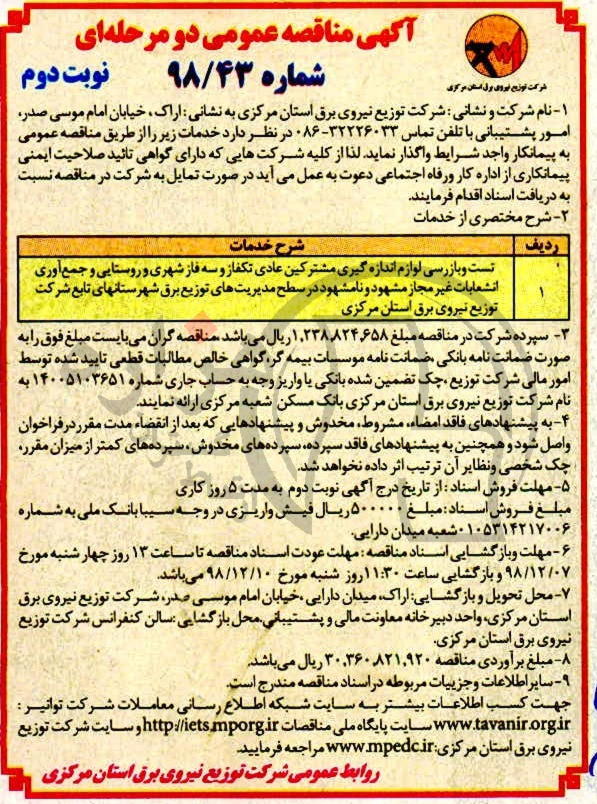 آگهی مناقصه عمومی دو مرحله‌ای
شماره ۹۸/۴۳
نوبت دوم
شرکت توزیع نیروی برق استان مرکزی
۱- نام شرکت و نشانی : شرکت توزیع نیروی برق استان مرکزی به نشانی : اراک ، خیابان امام موسی صدر،
امور پشتیبانی با تلفن تماس ۳۲۲۲۶۰۳۳-۰۸۶ در نظر دارد خدمات زیر را از طریق مناقصه عمومی
به پیمانکار واجد شرایط واگذار نماید. لذا از کلیه شرکت هایی که دارای گواهی تائید صلاحیت ایمنی
پیمانکاری از اداره کار ورفاه اجتماعی دعوت به عمل می آید در صورت تمایل به شرکت در مناقصه نسبت
به دریافت اسناد اقدام فرمایند.
۲- شرح مختصری از خدمات
ردیف شرح خدمات
۱ تست وبازرسی لوازم اندازه گیری مشترکین عادی تکفاز و سه فاز شهری و روستایی و جمع آوری
انشعابات غیر مجاز مشهود و نامشهود در سطح مدیریت های توزیع برق شهرستانهای تابع شرکت
توزیع نیروی برق استان مرکزی
۳- سپرده شرکت در مناقصه مبلغ ۱,۲۳۸,۸۲۴,۶۵۸ ریال می‌باشد ،مناقصه گران می‌بایست مبلغ فوق را به
صورت ضمانت نامه بانکی ،ضمانت نامه موسسات بیمه گر،گواهی خالص مطالبات قطعی تایید شده توسط
امور مالی شرکت توزیع ،چک تضمین شده بانکی یا واریز وجه به حساب جاری شماره ۱۴۰۰۵۱۰۳۶۵۱ به
نام شرکت توزیع نیروی برق استان مرکزی بانک مسکن شعبه مرکزی ارائه نمایند.
۴- به پیشنهادهای فاقد امضاء، مشروط، مخدوش و پیشنهادهایی که بعد از انقضاء مدت مقرر درفراخوان
واصل شود و همچنین به پیشنهادهای فاقد سپرده، سپرده‌های مخدوش ، سپرده‌های کمتر از میزان مقرر،
چک شخصی ونظایر آن ترتیب اثر داده نخواهد شد.
۵- مهلت فروش اسناد : از تاریخ درج آگهی نوبت دوم به مدت ۵ روز کاری
مبلغ فروش اسناد : مبلغ ۵۰۰۰۰۰ ریال فیش واریزی در وجه سیبا بانک ملی به شماره
۰۱۰۵۳۱۴۲۱۷۰۰۶ شعبه میدان دارایی.
۶- مهلت وبازگشایی اسناد مناقصه : مهلت عودت اسناد مناقصه تا ساعت ۱۳ روز چهار شنبه مورخ
۹۸/۱۲/۰۷ و بازگشایی ساعت ۱۱:۳۰ روز شنبه مورخ ۹۸/۱۲/۱۰ می‌باشد.
۷- محل تحویل و بازگشایی: اراک، میدان دارایی ،خیابان امام موسی صدر، شرکت توزیع نیروی برق
استان مرکزی، واحد دبیرخانه معاونت مالی و پشتیبانی.محل بازگشایی :سالن کنفرانس شرکت توزیع
نیروی برق استان مرکزی.
۸- مبلغ برآوردی مناقصه ۳۰,۳۶۰,۸۲۱,۹۲۰ ریال می‌باشد.
۹- سایر اطلاعات وجزییات مربوطه دراسناد مناقصه مندرج است.
جهت کسب اطلاعات بیشتر به سایت شبکه اطلاع رسانی معاملات شرکت توانیر :
www.tavanir.org.ir سایت پایگاه ملی مناقصات http://iets.mporg.ir و سایت شرکت توزیع
نیروی برق استان مرکزی: www.mpedc.ir مراجعه فرمایید.
روابط عمومی شرکت توزیع نیروی برق استان مرکزی